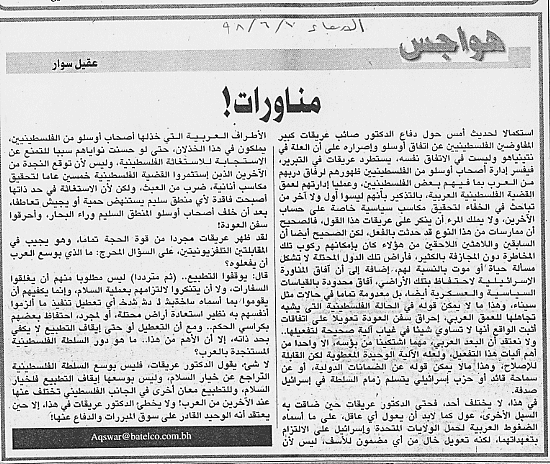 الأربعاء ٩٨/٦/١٠
هواجس
عقيل سوار
مناورات!
استكمالا لحديث أمس حول دفاع الدكتور صائب عريقات كبير
المفاوضين الفلسطينيين عن اتفاق أوسلو وإصراره على أن العلة في
نيتنياهو وليست في الاتفاق نفسه، يستطرد عريقات في التبرير،
فيفسر إدارة أصحاب أوسلو من الفلسطينيين ظهورهم لرفاق دربهم
من العرب بما فيهم بعض الفلسطينيين، وعمليا إدارتهم لعمق
القضية الفلسطينية العربية، بالتذكير بأنهم ليسوا أول ولا آخر من
تباحث في الخفاء لتحقيق مكاسب سياسية خاصة على حساب
الآخرين، ولا يملك المرء أن ينكر على عريقات هذا القول، فالصحيح
أن ممارسات من هذا النوع قد حدثت بالفعل، ولكن الصحيح أيضا أن
السابقين واللاهثين اللاحقين من هؤلاء كان بإمكانهم ركوب تلك
المخاطرة دون المجازفة بالكثير، فأراض تلك الدول المحتلة لا تشكل
مسألة حياة أو موت بالنسبة لهم، إضافة إلى أن آفاق المناورة
الإسرائيلية لاحتفاظ بتلك الأراضي، آفاق محدودة بالقياسات
السياسية والعسكرية أيضا، بل معدومة تماما في حالات مثل
سيناء، وهذا ما لا يمكن قوله في الحالة الفلسطينية التي يشبه
تجاهلها للعمق العربي، إحراق سفن العودة تعويلا على اتفاقات
أثبت الواقع أنها لا تساوي شيئا في غياب آلية صحيحة لتفعيلها..
ولا نعتقد أن البعد العربي، مهما اشتكينا من بؤسه، إلا واحدا من
أهم آليات هذا التفعيل، ولعله الآلية الوحيدة المعطوبة لكن القابلة
للإصلاح، وهذا مالا يمكن قوله عن الضمانات الدولية، أو عن
سماحة قائد أو حزب إسرائيلي يتسلم زمام السلطة في إسرائيل
صدفة.
في هذا، لا يختلف أحد، فحتى الدكتور عريقات حين ضاقت به
السبل الأخرى، عول كما لابد أن يعول أي عاقل، على ما أسماه
الضغوط العربية لحمل الولايات المتحدة وإسرائيل على الالتزام
بتعهداتهما، لكنه تعويل خال من أي مضمون للأسف، ليس لأن
الأطراف العربية التي خذلها أصحاب أوسلو من الفلسطينيين،
يملكون في هذا الخذلان، حتى لو حسنت نواياهم سببا للتمنع عن
الاستجابة للاستغاثة الفلسطينية، وليس لأن توقع النجدة من
الآخرين الذين إستثمروا القضية الفلسطينية خمسين عاما لتحقيق
مكاسب أنانية، ضرب من العبث، ولكن لأن الاستغاثة في حد ذاتها
أصبحت فاقدة لأي منطق سليم يستنهض حمية أو يجيش تعاطفا،
بعد أن خلف أصحاب أوسلو المنطق السليم وراء البحار، وأحرقوا
سفن العودة!
لقد ظهر عريقات مجردا من قوة الحجة تماما، وهو يجيب في
المقابلتين التلفزيونيتين، على السؤال المحرج: ما الذي بوسع العرب
أن يفعلوه؟
قال: يوقفوا التطبيع.. (ثم مترددا) ليس مطلوبا منهم أن يغلقوا
السفارات، ولا أن يتنكروا لالتزامهم بعملية السلام، وإنما يكفيهم أن
يقوموا بما أسماه أي تعطيل تنفيذ ما ألزموا
أنفسهم به نظير استعادة أراض محتلة، أو لمجرد، احتفاظ بعضهم
بكراسي الحكم.. ومع أن التعطيل أو حتى إيقاف التطبيع لا يكفي
بحد ذاته، إلا أن الأهم من هذا.. ما هو دور السلطة الفلسطينية
المستنجدة بالعرب؟
لا شيء، يقول الدكتور عريقات، فليس بوسع السلطة الفلسطينية
التراجع عن خيار السلام، وليس بوسعها إيقاف التطبيع فلخيار
السلام، وللتطبيع معان أخرى في الجانب الفلسطيني تختلف عنها
عند الآخرين من العرب! ولا يخطئ الدكتور عريقات في هذا، إلا حين
يعتقد أنه الوحيد القادر على سوق المبررات والدفاع عنها!
Aqswar@batelco.com.bh